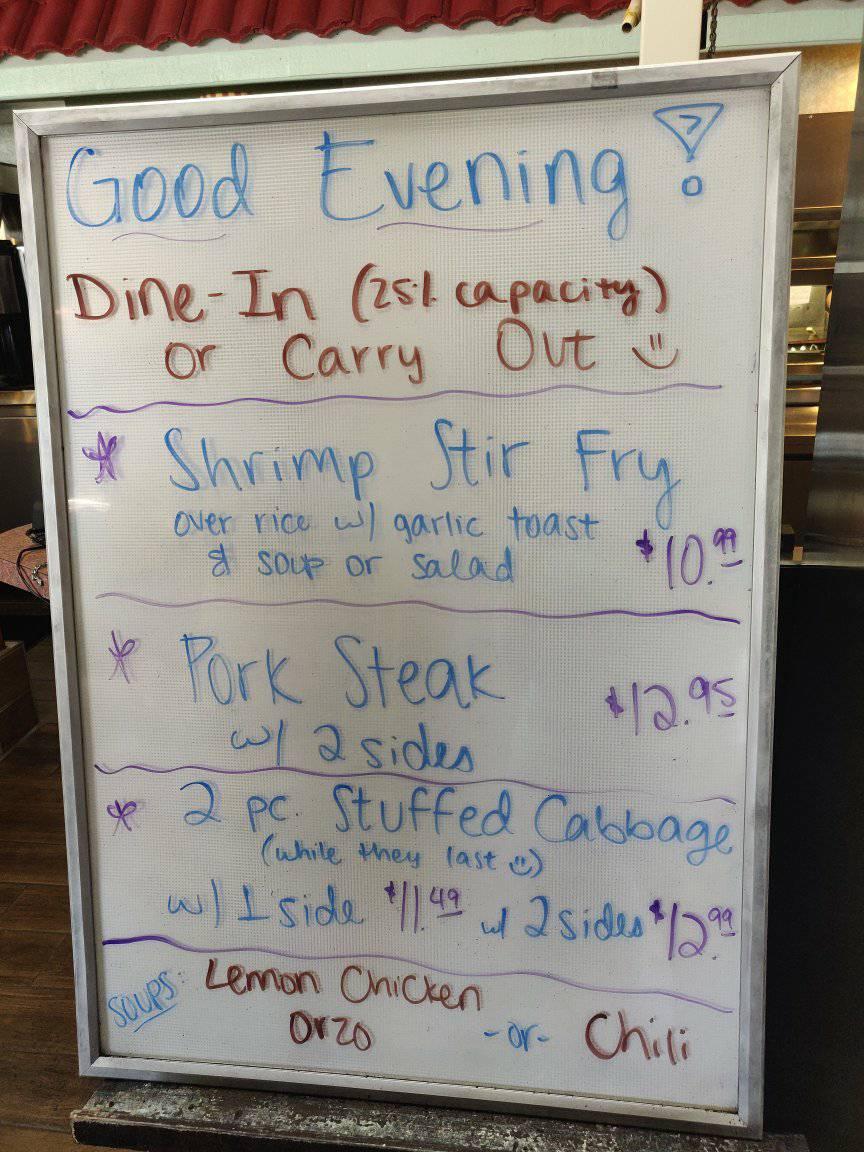 Good Evening!
Dine-In (25% capacity)
or Carry Out
* Shrimp Stir Fry
over rice w/ garlic toast
& soup or salad $10.99
* Pork Steak $12.95
w/ 2 sides
* 2 pc. Stuffed Cabbage
(while they last)
w/ 1 side $11.49 w/ 2 sides $12.99
SOUPS: Lemon Chicken
Orzo -or- Chili